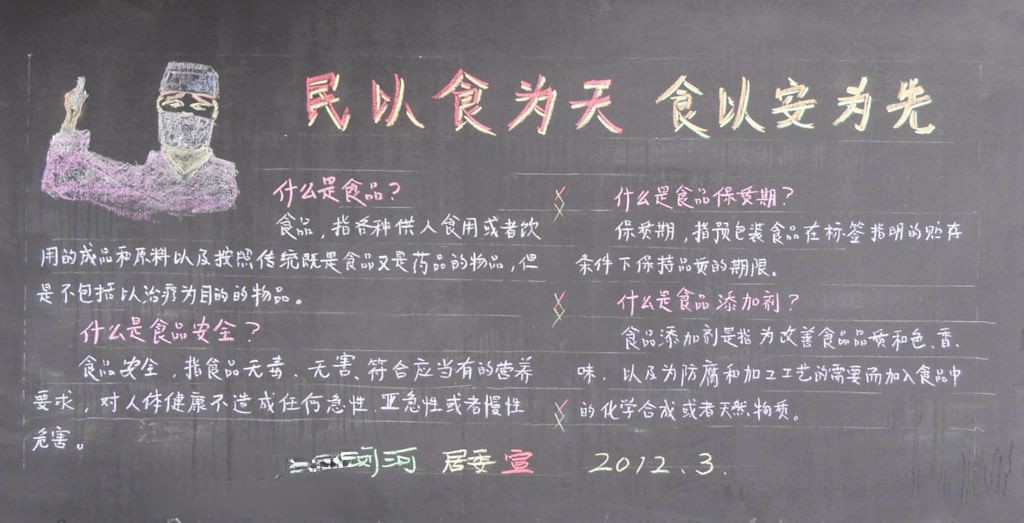 民以食为天 食以安为先
什么是食品？
食品，指各种供人食用或者饮
用的成品和原料以及按照传统既是食品又是药品的物品，但
是不包括以治疗为目的的物品。
什么是食品安全？
食品安全，指食品无毒、无害、符合应当有的营养
要求，对人体健康不造成任何急性、亚急性或者慢性
危害。
什么是食品保质期？
保质期，指预包装食品在标签指明的贮存
条件下保持品质的期限。
什么是食品添加剂？
食品添加剂是指为改善食品品质和色、香、
味，以及为防腐和加工工艺的需要而加入食品中
的化学合成或者天然物质。
浏河 居委 宣 2012.3.